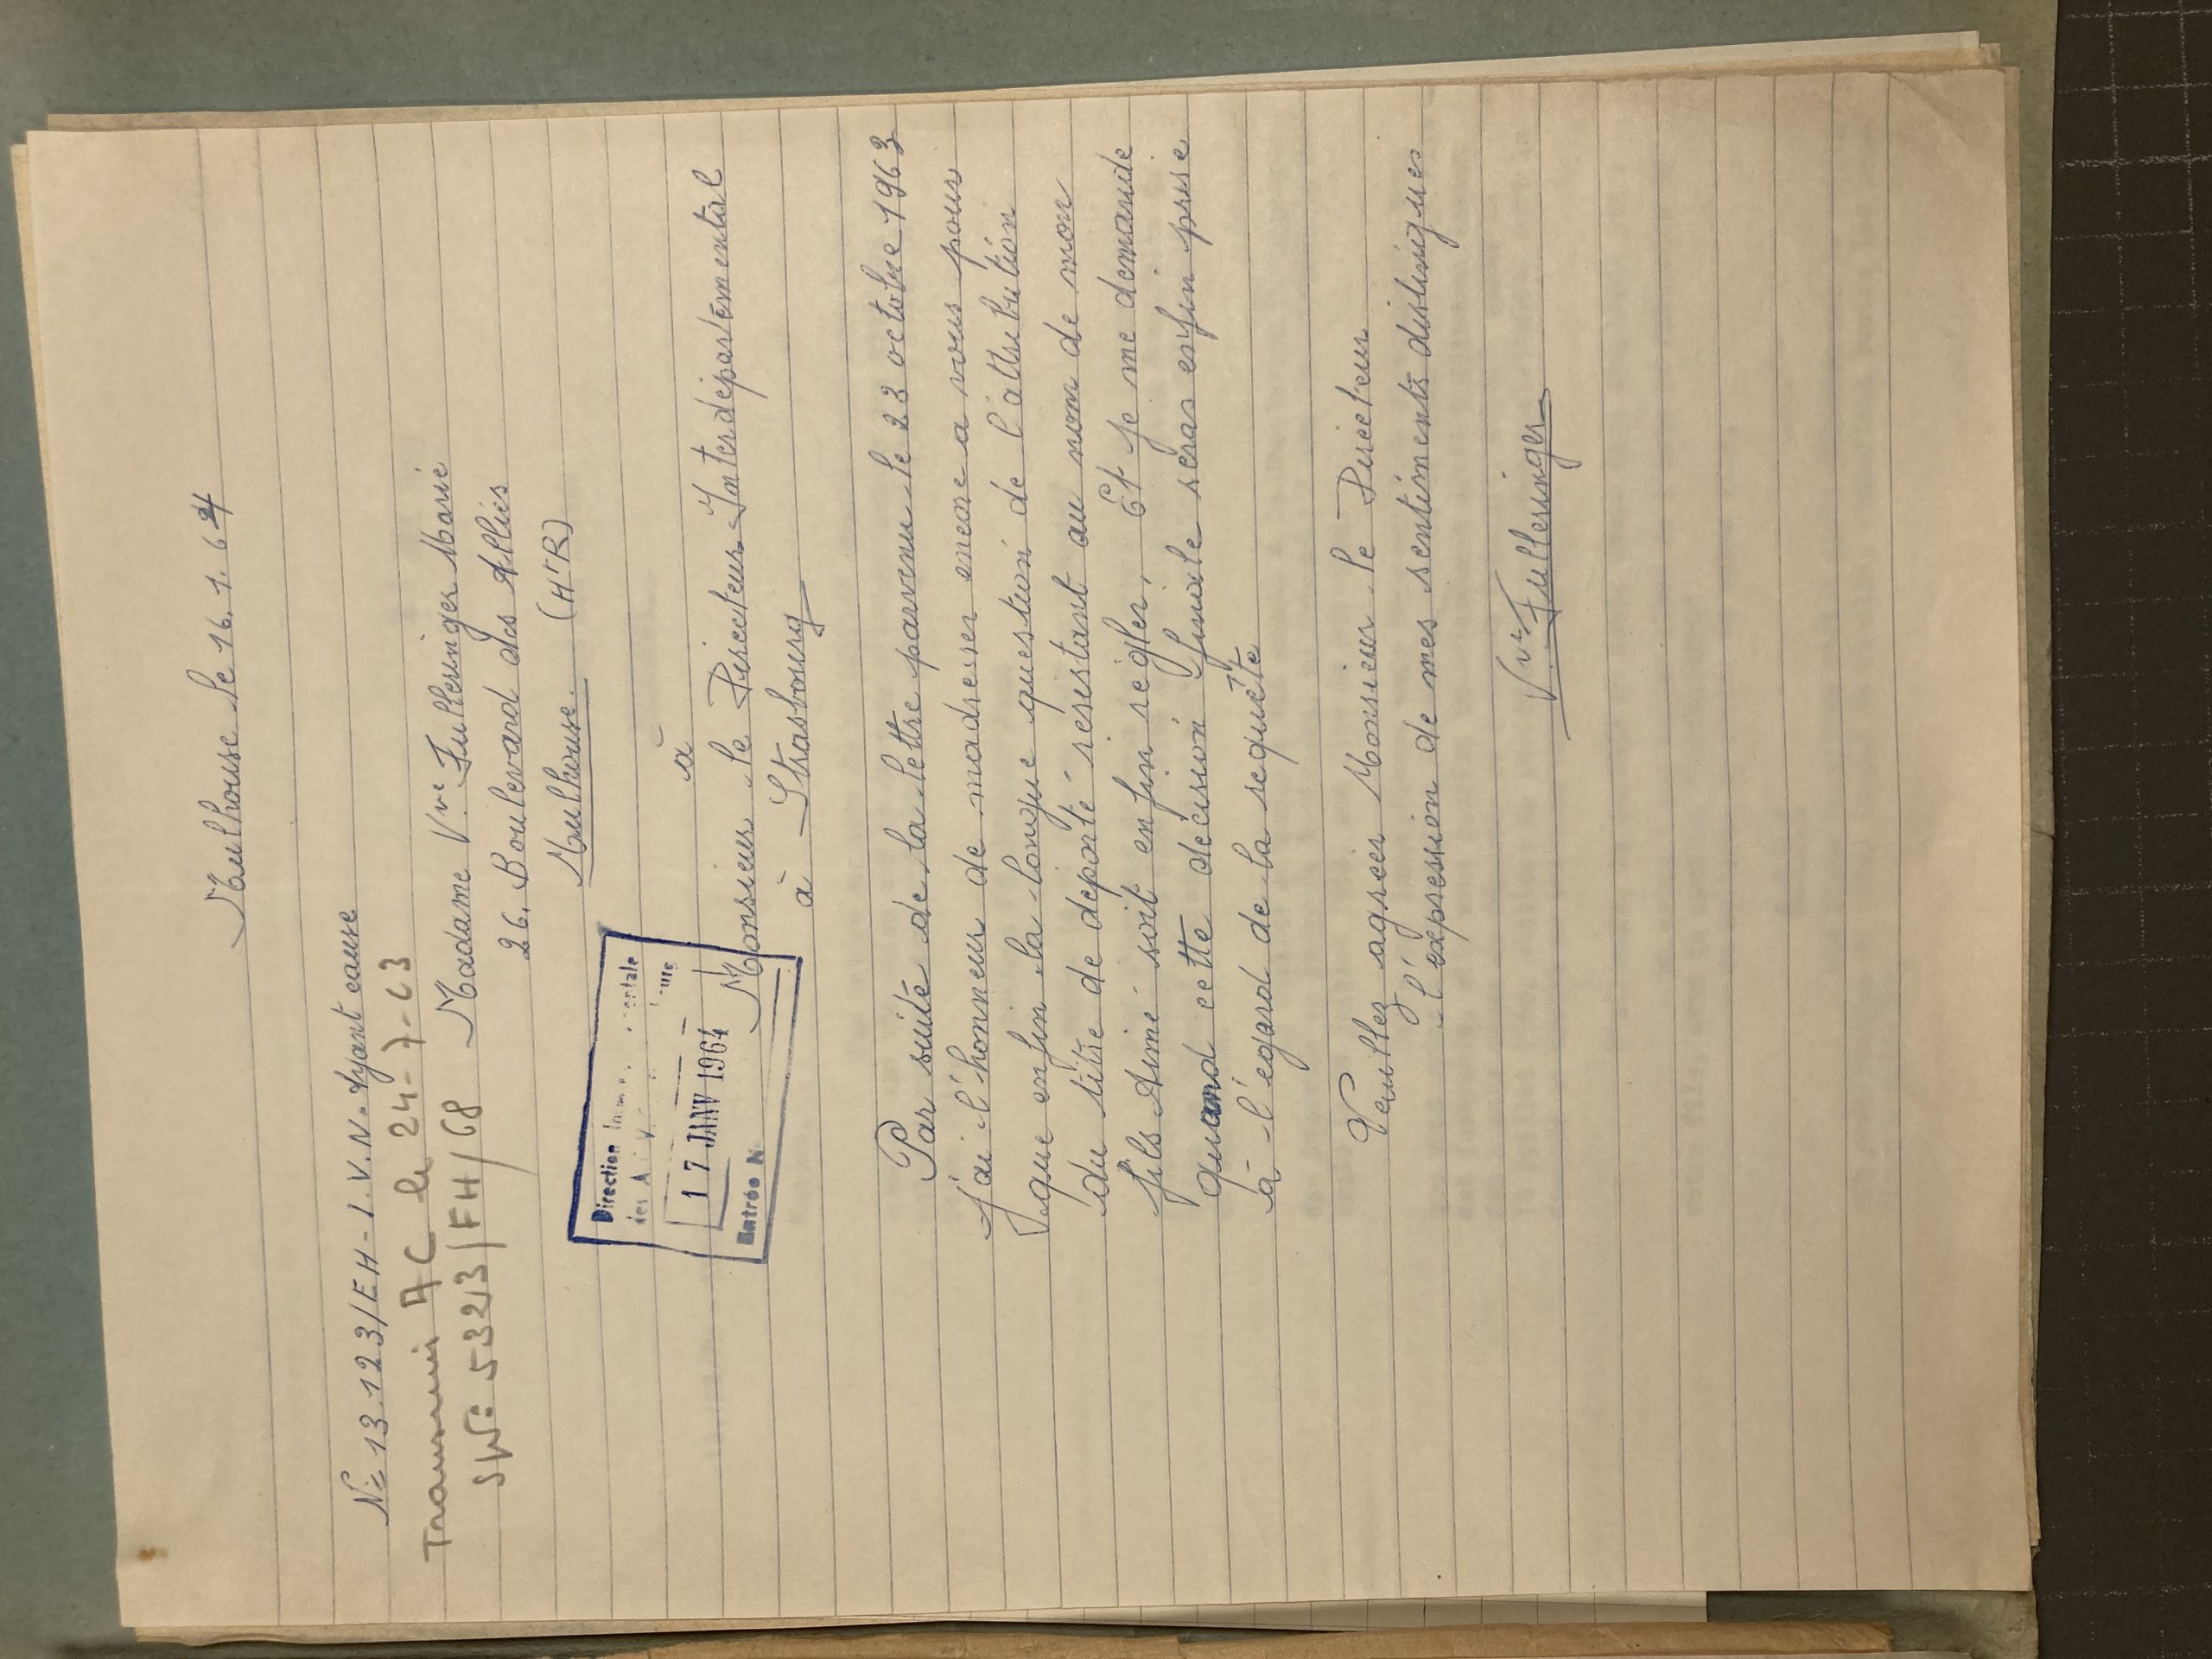 Mulhouse le 16.1.64
N° 13.123/EH-I.V.N. Ayant cause
Transmis AC le 24-7-63
SW: 53213/FH/68
Madame Vve Fulleringer Marie
26. Boulevard des Alliés
Mulhouse. (Ht R)
à
Direction
des A V
17 JANV 1964
Entrée N
Monsieur le Directeur Interdépartemental
à Strasbourg
Par suite de la lettre parvenu le 23 octobre 1963
j'ai l'honneur de madresser encore a vous pour
que enfin la longue question de l'attribution
du titre de deporté résistant au nom de mon
fils Aimé soit enfin régler. Et je me demande
quand cette décision finale seras enfin prise
à l'egard de la requête
Veuillez agréer Monsieur le Directeur
l'expression de mes sentiments distingues
Vve Fulleringer